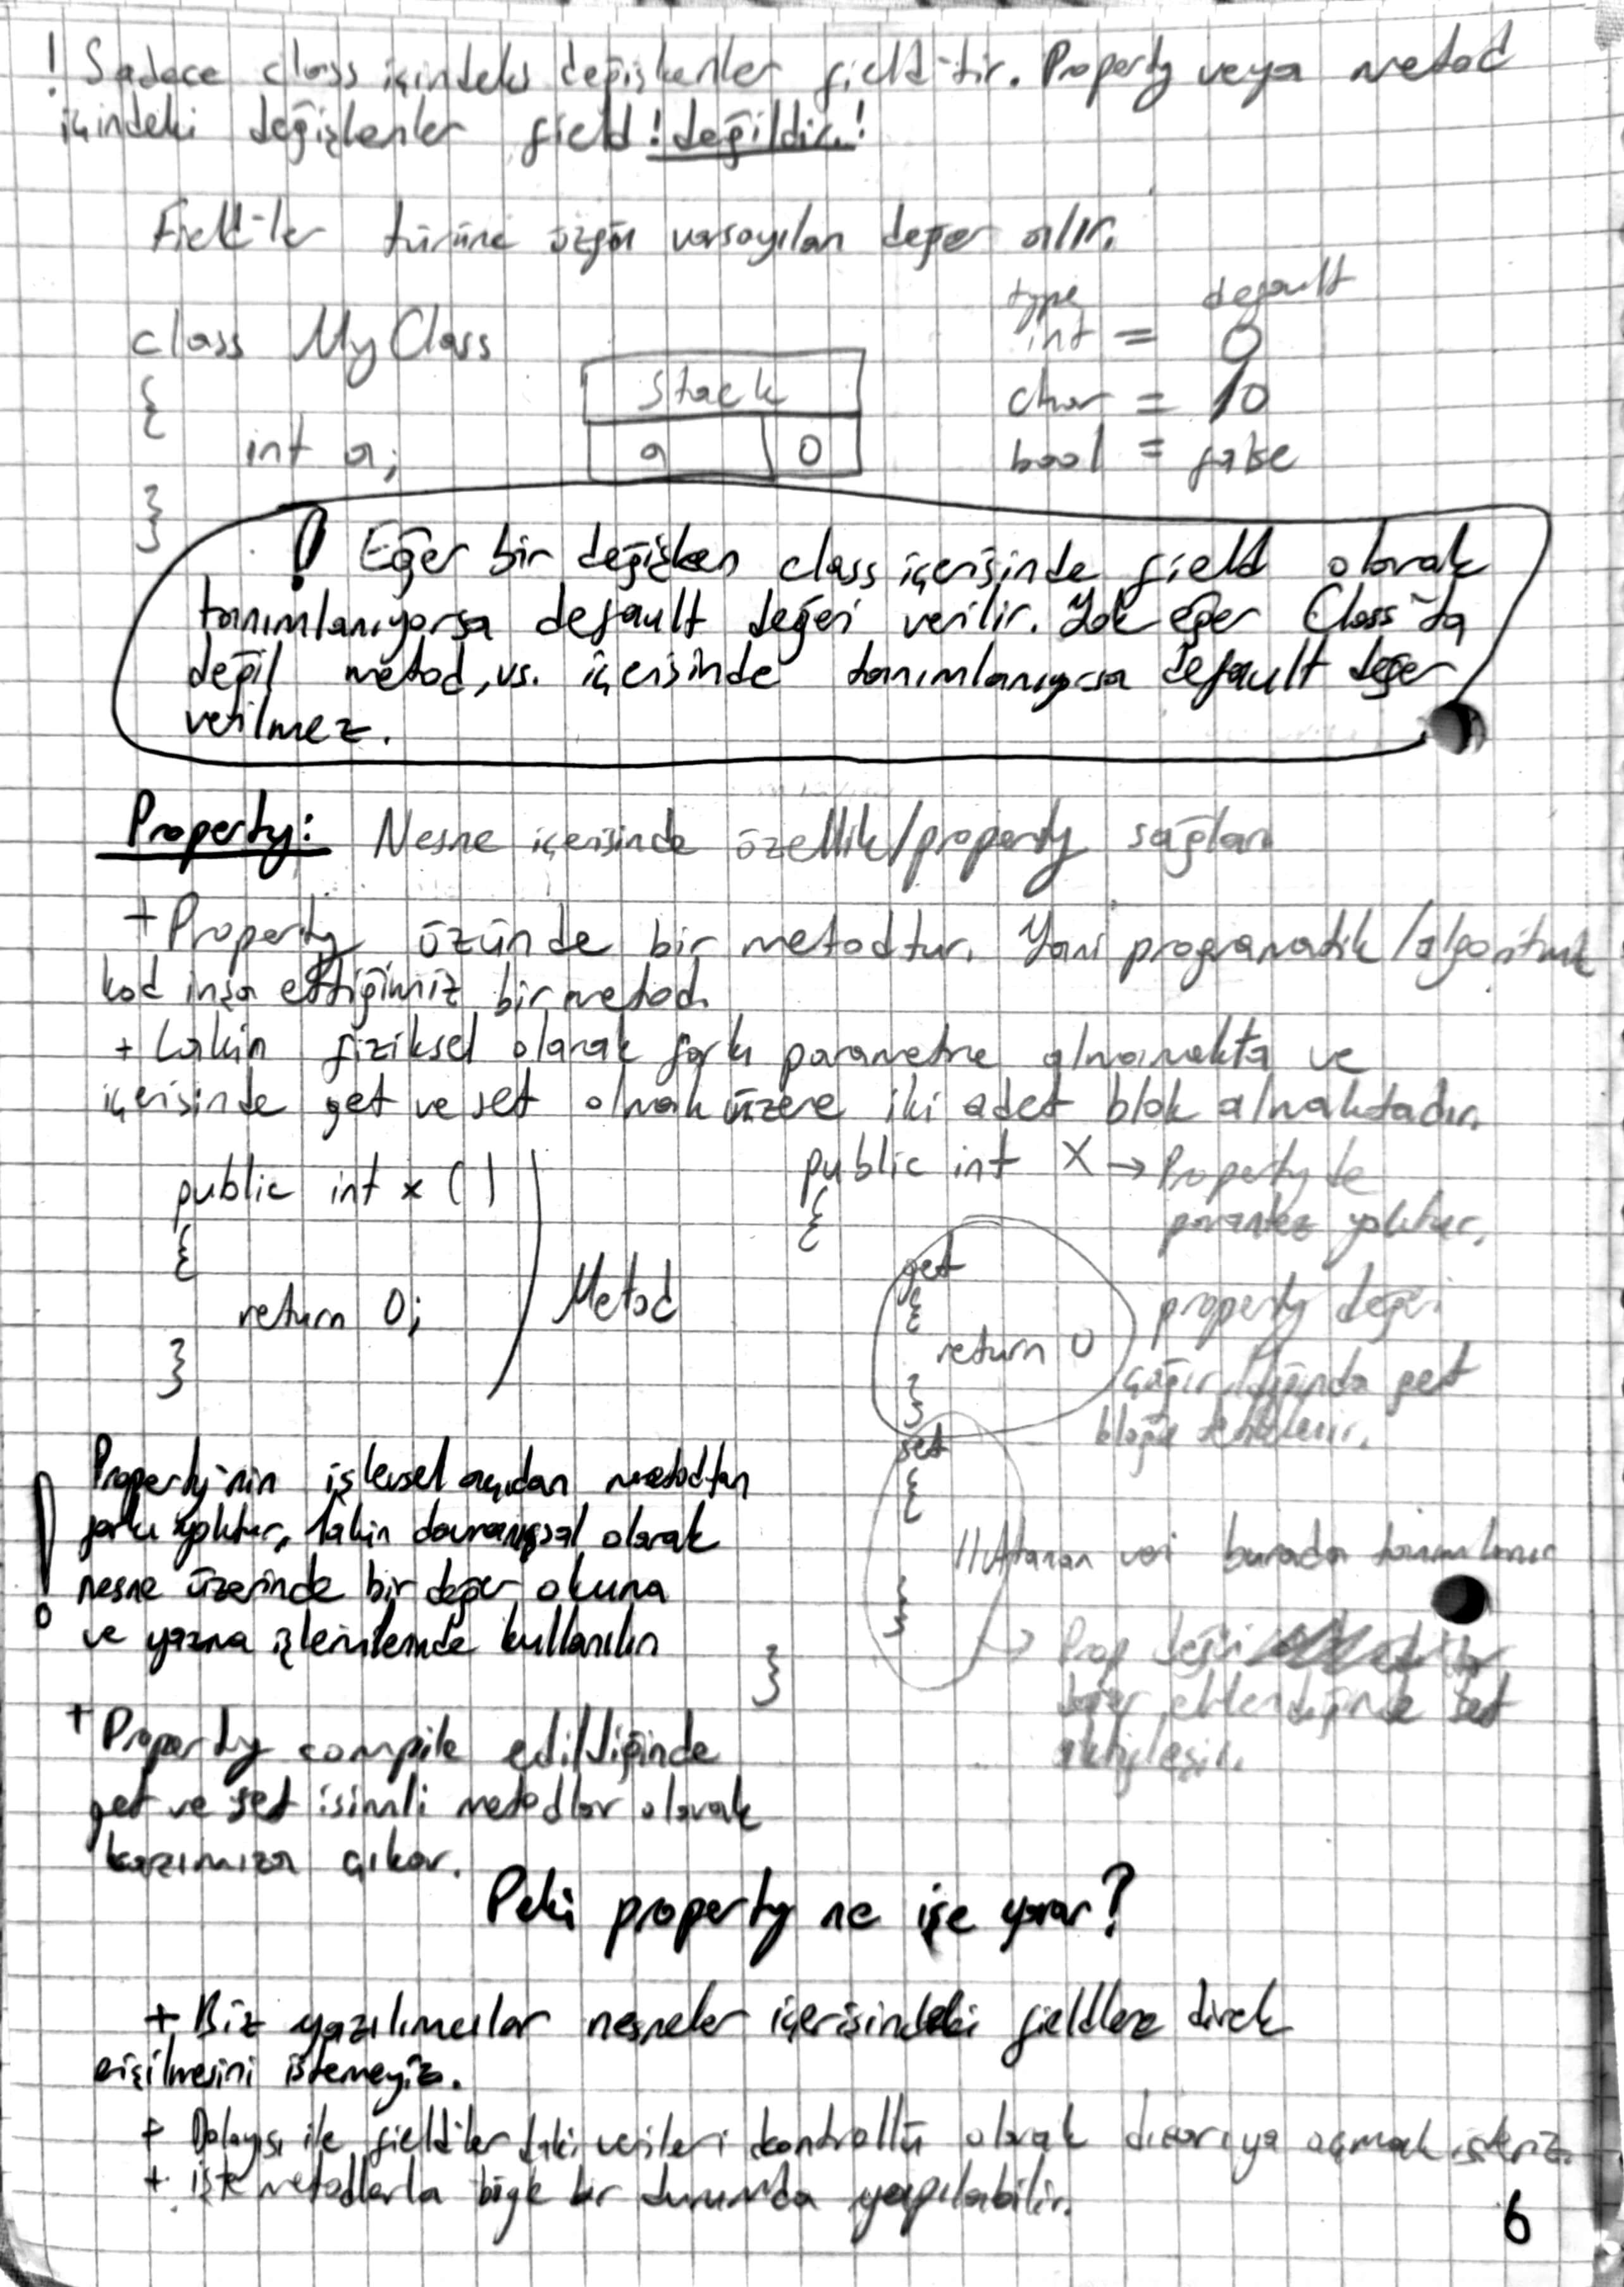 ! Sadece class içindeki değişkenler field'tir. Property veya metod
içindeki değişkenler field ! değildir. !
Field'ler türüne özgü varsayılan değer alır.
type default
class MyClass
int = 0
{
Stack
char = \0
int a;
a 0
bool = false
}
! Eğer bir değişken class içerisinde field olarak
tanımlanıyorsa default değeri verilir. Yok eğer Class'ta
değil metod, vs. içerisinde tanımlanıyorsa default değer
verilmez.
Property: Nesne içerisinde özellik/property sağlar
+ Property özünde bir metodtur. Yani programatik/algoritmik
kod inşa ettiğimiz bir metod.
+ Lakin fiziksel olarak farkı parametre almamakta ve
içerisinde get ve set olmak üzere iki adet blok almaktadır.
public int x ()
{
return 0;
}
Metod
public int X → Property'de
parantez yoktur.
{
get
{
return 0
}
property değeri
çağırıldığında get
bloğu tetiklenir.
set
{
//Atanan veri burada tanımlanır
}
→ Prop değeri
değer eklendiğinde set
aktifleşir.
}
! Property'nin işlevsel açıdan metodtan
farkı yoktur, lakin davranışsal olarak
nesne üzerinde bir değer okuma
ve yazma işlemlerinde kullanılır
+ Property compile edildiğinde
get ve set isimli metodlar olarak
karşımıza çıkar.
Peki property ne işe yarar?
+ Biz yazılımcılar nesneler içerisindeki fieldlere direk
erişilmesini istemeyiz.
+ Dolayısı ile field'lerdaki verileri kontrollü olarak dışarıya açmak isteriz.
+ işte metodlarla böyle bir durumda yapılabilir.
6